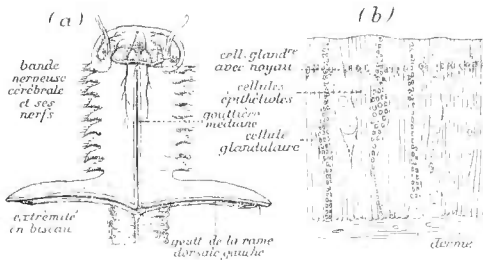 (a)
bande
nerveuse
cérébrale
et ses
nerfs
gouttière
médiane
extrémité
en biseau
goutt de la rame
dorsale gauche
(b)
cell. gland^re
avec noyau
cellules
épithéliales
cellule
glandulaire
derme